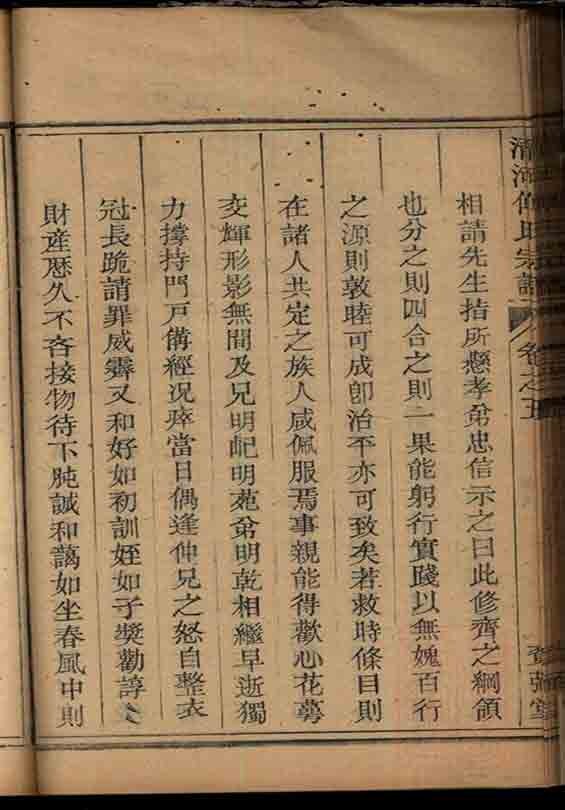 相請先生指所懸孝弟忠信示之曰此修齊之綱領
也分之則四合之則一果能躬行實踐以無媿百行
之源則敦睦可成卽治平亦可致矣若救時條目則
在諸人共定之族人咸佩服焉事親能得歡心花萼
交輝形影無間及兄明𡵆明苑弟明乾相繼早逝獨
力撐持門戶備經况瘁當日偶逢仲兄之怒自整衣
冠長跪請罪威霽又和好如初訓姪如子獎勸諄〻
財産歷久不吝接物待下肫誠和藹如坐春風中則
宗譜
卷之五